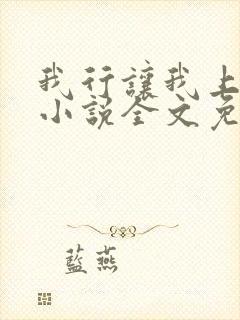 我行讓我上
小說全文免
藍燕